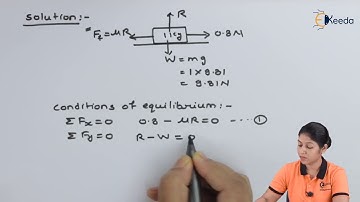 Solution:-
R
Fs = μR
1 kg
0.8N
W = mg
= 1 x 9.81
= 9.81N
Conditions of equilibrium:-
ΣFx = 0 0.8 - μR = 0 ---- ①
ΣFy = 0 R - W = 0
Ekeeda